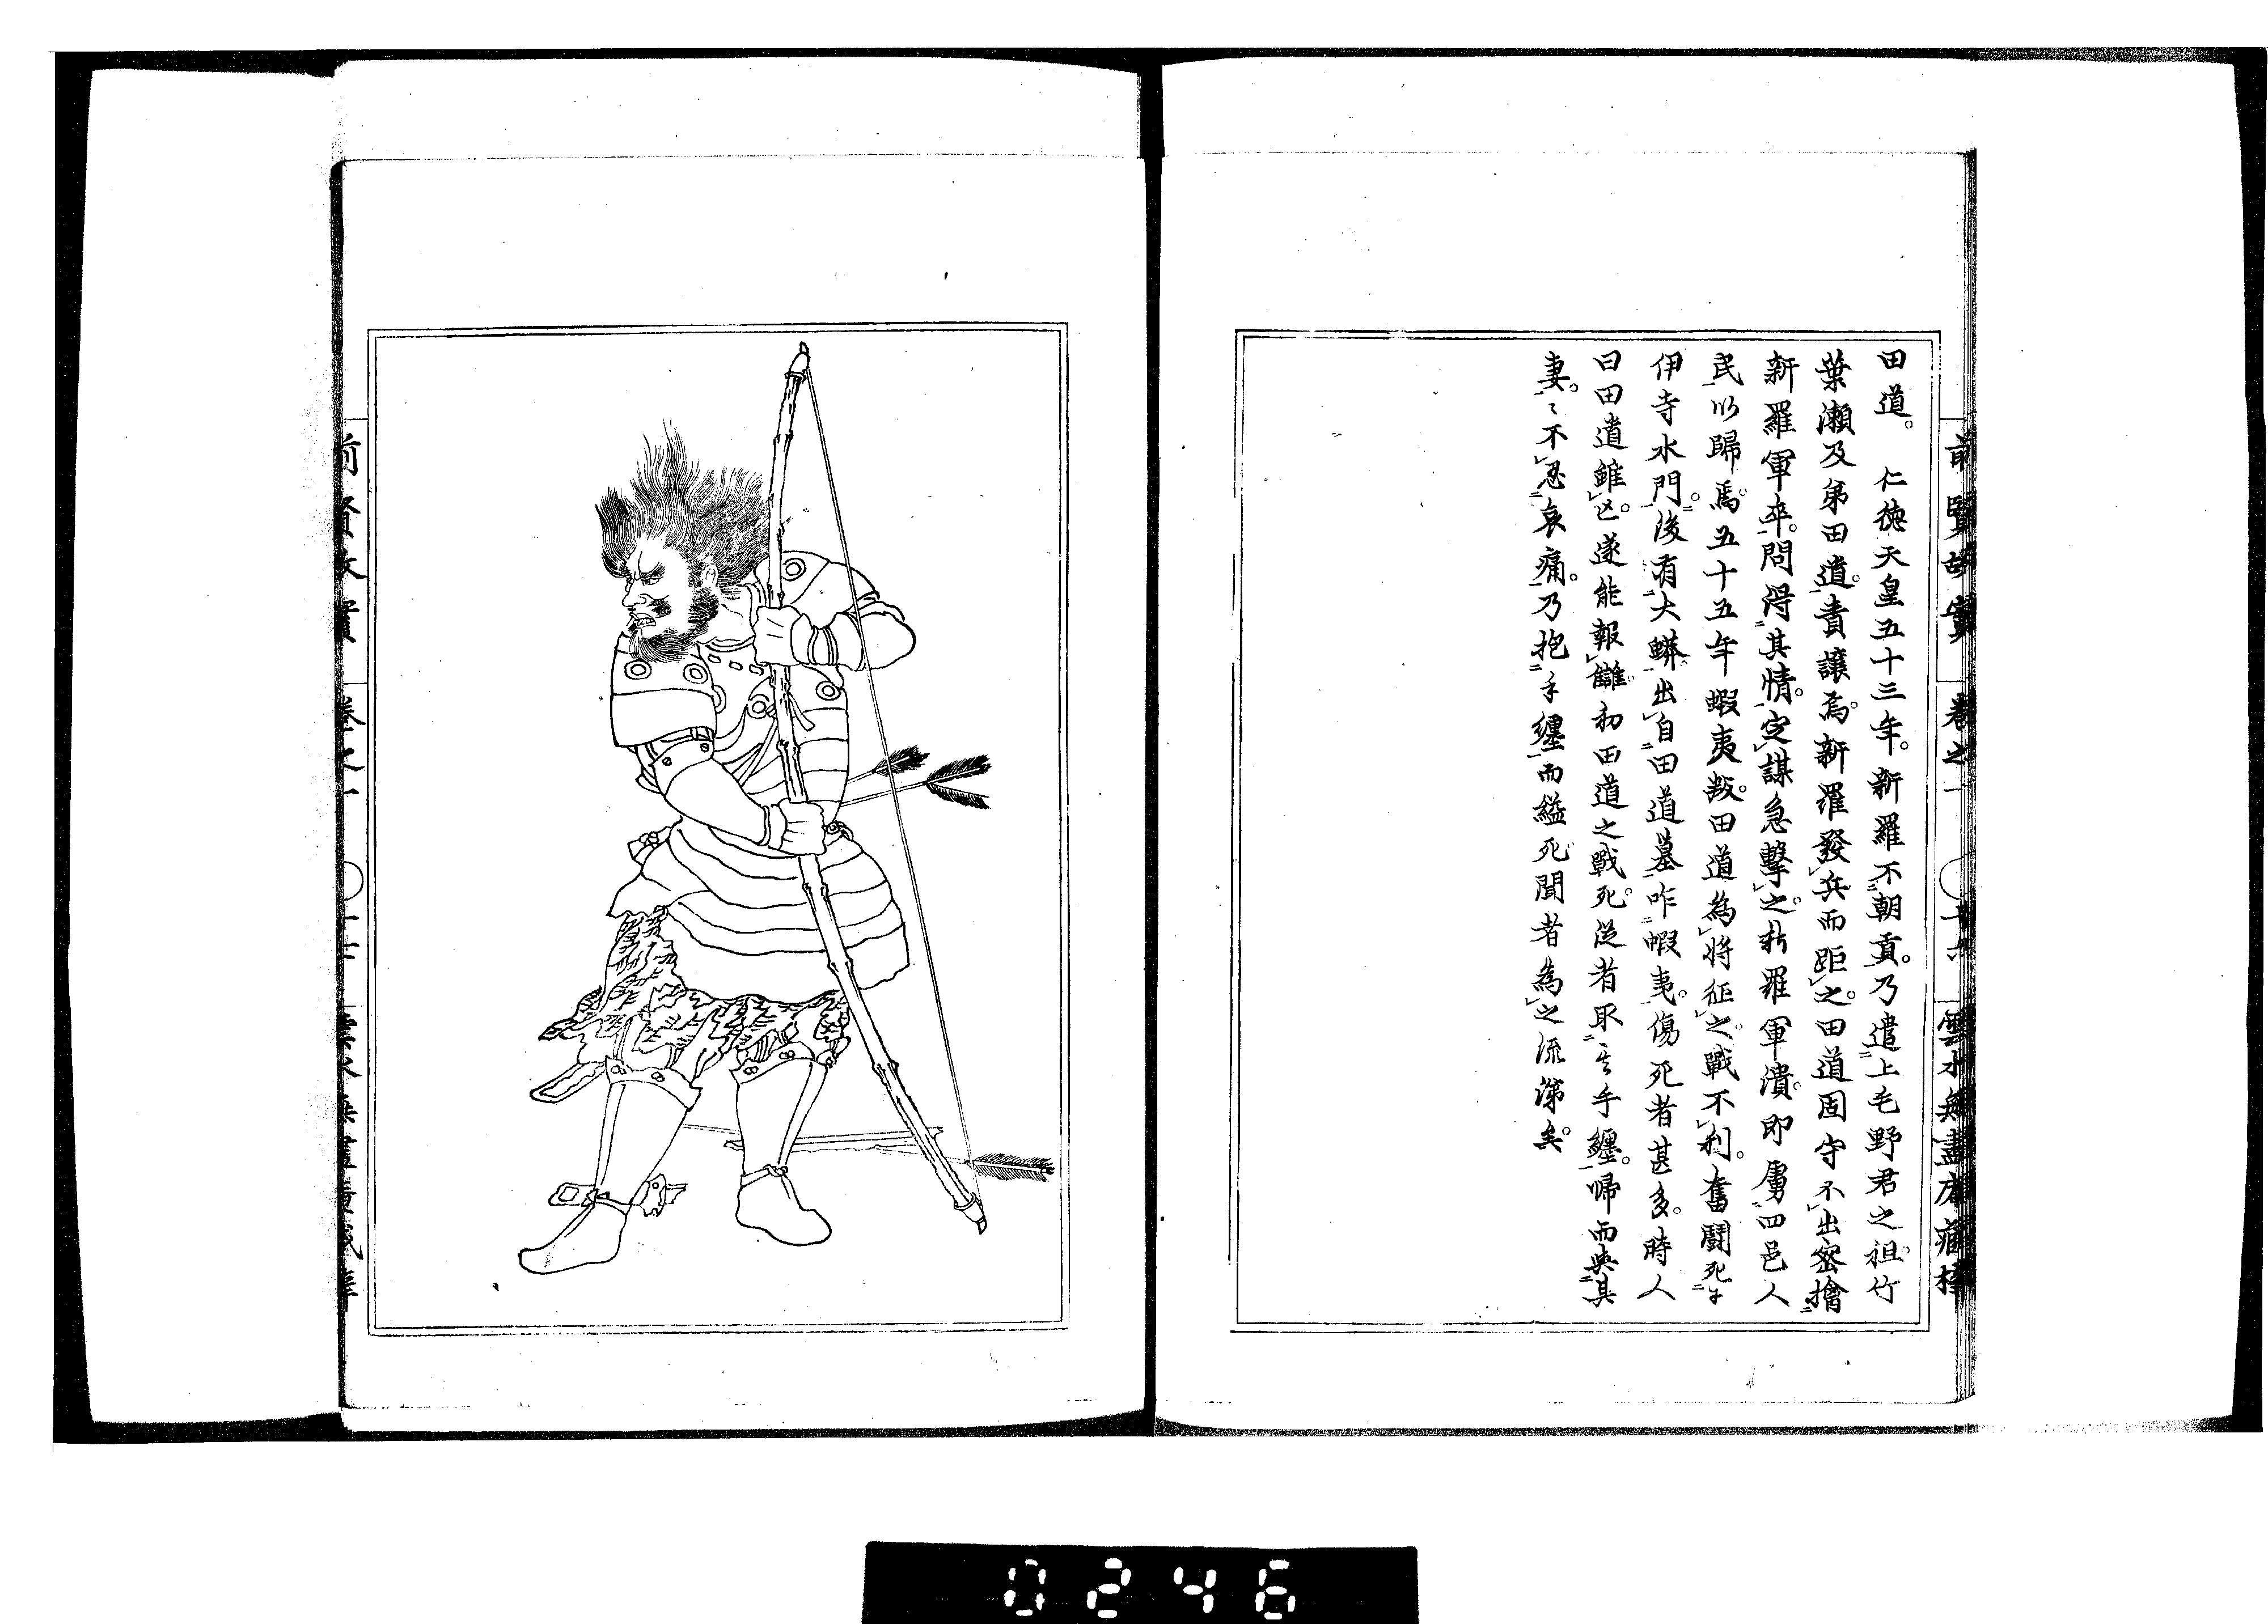 前賢故實 卷之一 ○十六 雲水無盡庵藏梓
田道。 仁徳天皇五十三年。新羅不朝貢。乃遣上毛野君之祖。竹
葉瀬及弟田道。責讓焉。新羅發兵而距之。田道固守不出密擒
新羅軍卒。問得其情。定謀急擊之。新羅軍潰。即虜四邑人
民以歸焉。五十五年蝦夷叛。田道為將征之。戰不利。奮鬪死于
伊寺水門。後有大蟒。出自田道墓咋蝦夷。傷死者甚多。時人
曰田道雖亡。遂能報讎。初田道之戰死。從者取其手纏。帰而與其
妻。〻不忍哀痛。乃抱手纏而縊死聞者為之流涕矣。
0246